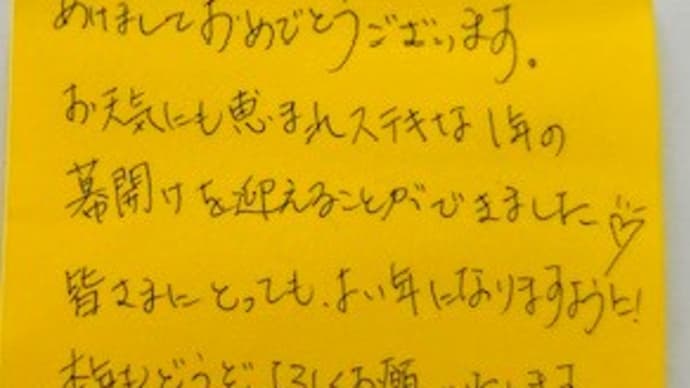 あけましておめでとうございます。
お天気にも恵まれステキな1年の
幕開けを迎えることができました♡
皆さまにとっても、よい年になりますように!
本年もどうぞよろしくお願いいたします